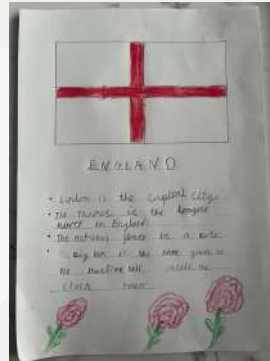 ENGLAND
• London is the Capital City.
• The Thames is the longest
river in England.
• The national flower is a rose
• Big Ben is the name given to
the bell inside the
clock tower